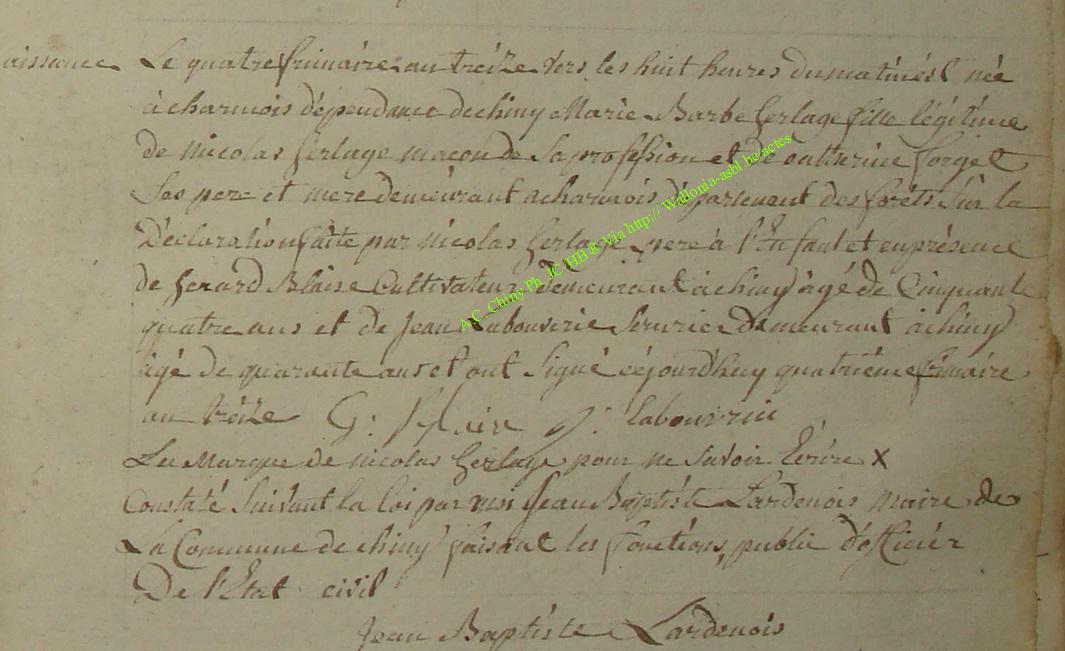 aissance Le quatre frimaire an treize vers les huit heures du matin ést née
à charmois dépendance de chiny Marie Barbe Gerlage fille légitime
de nicolas Gerlage macon de Sa profession et de Catherine Forget
Ses pere et mere demeurant a charmois département des foréts Sur la
Déclaration faite par nicolas Gerlage pere à l'Enfant et en présence
de Gerard Blaise Cultivateur demeurant à chiny âgé de Cinquante
quatre ans et de Jean Labouverie Serurier demeurant à chiny
âgé de quarante ans et ont Signé céjourd'huy quatriéme frimaire
an treize G: Blaise J: labouverie
La Marque de nicolas Gerlage pour ne Savoir Ecrire X
Constaté Suivant la loi par moi Jean Baptiste Lardenois maire de
La Commune de chiny faisant les fonctions public d'officiér
De l'Etat civil
Jean Baptiste Lardenois
A.C. Chiny Ph. JC HB ® Via http:// Wallonia-asbl.be/actes